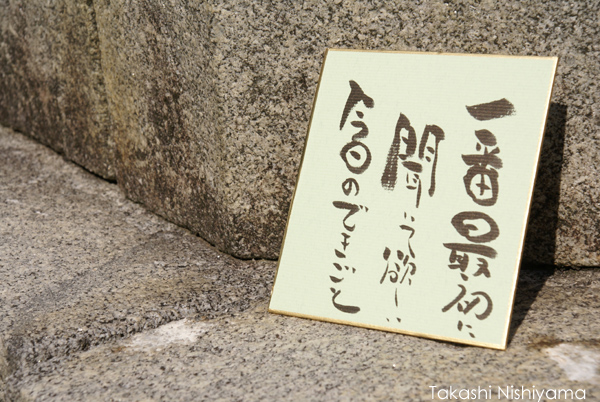 一番最初に
聞いて欲しい
今日のできごと
Takashi Nishiyama